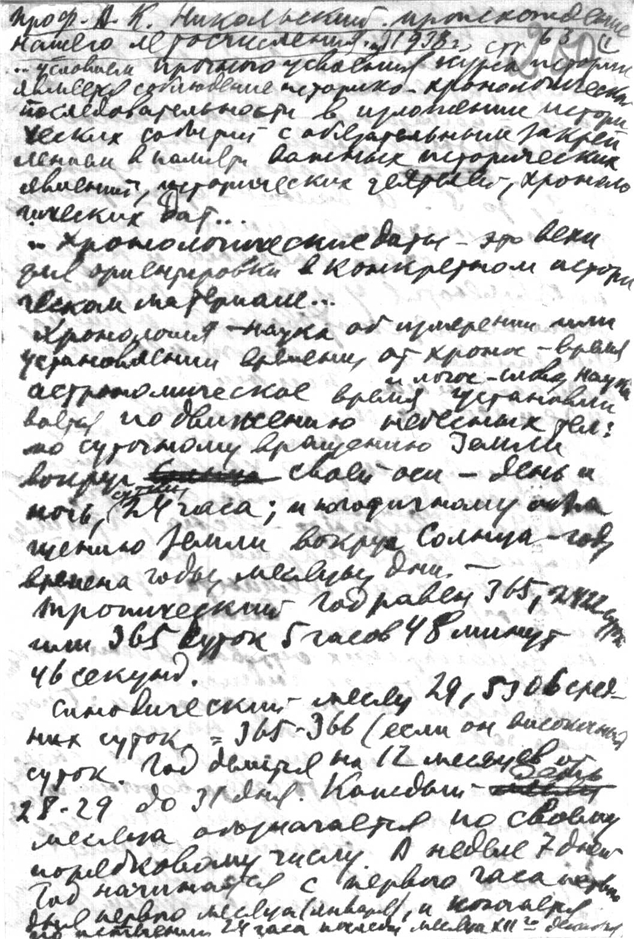 проф. А. К. Никольский. происхождение
нашего летосчисления. 1938 г. стр 63
... условием прочного усвоения курса истории
является соблюдение историко-хронологической
последовательности в изложении истори
ческих событий с обязательным закреп
лением в памяти важных исторических
явлений, исторических деятелей, хроноло
гических дат...
.. Хронологические даты - это вехи
для ориентировки в конкретном истори
ческом материале...
Хронология - наука об измерении или
установлении времени, от хронос - время
и логос - слово, наука
астрономическое время устанавли
вается по движению небесных тел:
по суточному вращению Земли
вокруг своей оси - день и
ночь, сутки 24 часа; и по годичному
щению Земли вокруг Солнца - год,
времена года, месяцы, дни. -
Тропический год равен 365,2422 суток
или 365 суток 5 часов 48 минут
46 секунд.
Синодический месяц 29,5306 сред
них суток. = 365-366 (если он високосный)
суток. Год делится на 12 месяцев от
28-29 до 31 дня. Каждый день
месяца обозначается по своему
порядковому числу. В неделе 7 дней
Год начинается с первого часа первого
дня первого месяца (января), и кончается
по истечении 24 часа последн месяца XII го